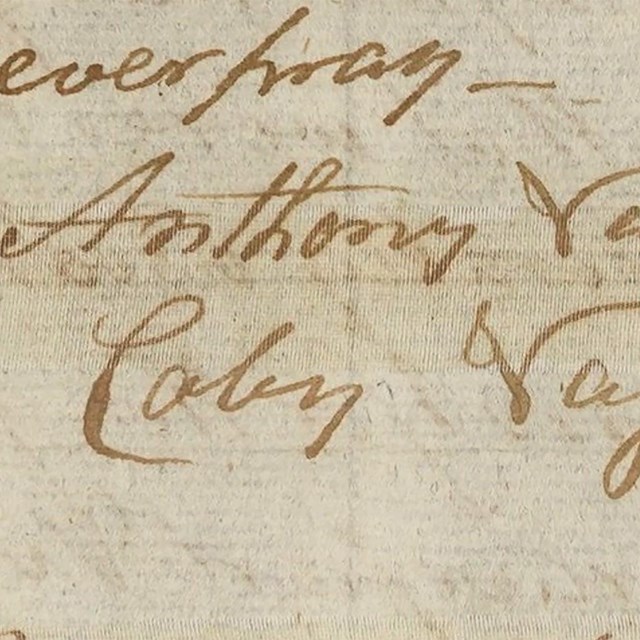 ever pray —
Anthony Va
Coby Va